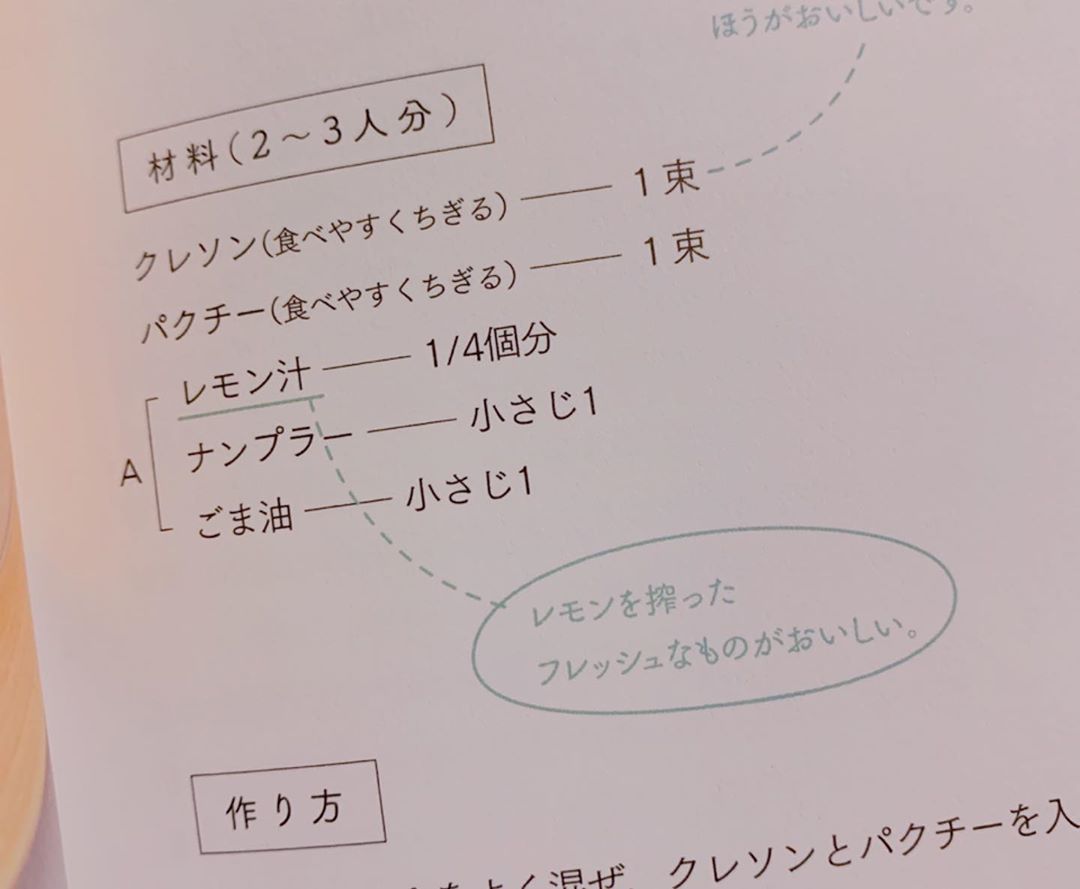 ほうがおいしいです。
材料(2〜3人分)
クレソン(食べやすくちぎる) 1束
パクチー(食べやすくちぎる) 1束
A
レモン汁 1/4個分
ナンプラー 小さじ1
ごま油 小さじ1
レモンを搾った
フレッシュなものがおいしい。
作り方
よく混ぜ、クレソンとパクチーを入